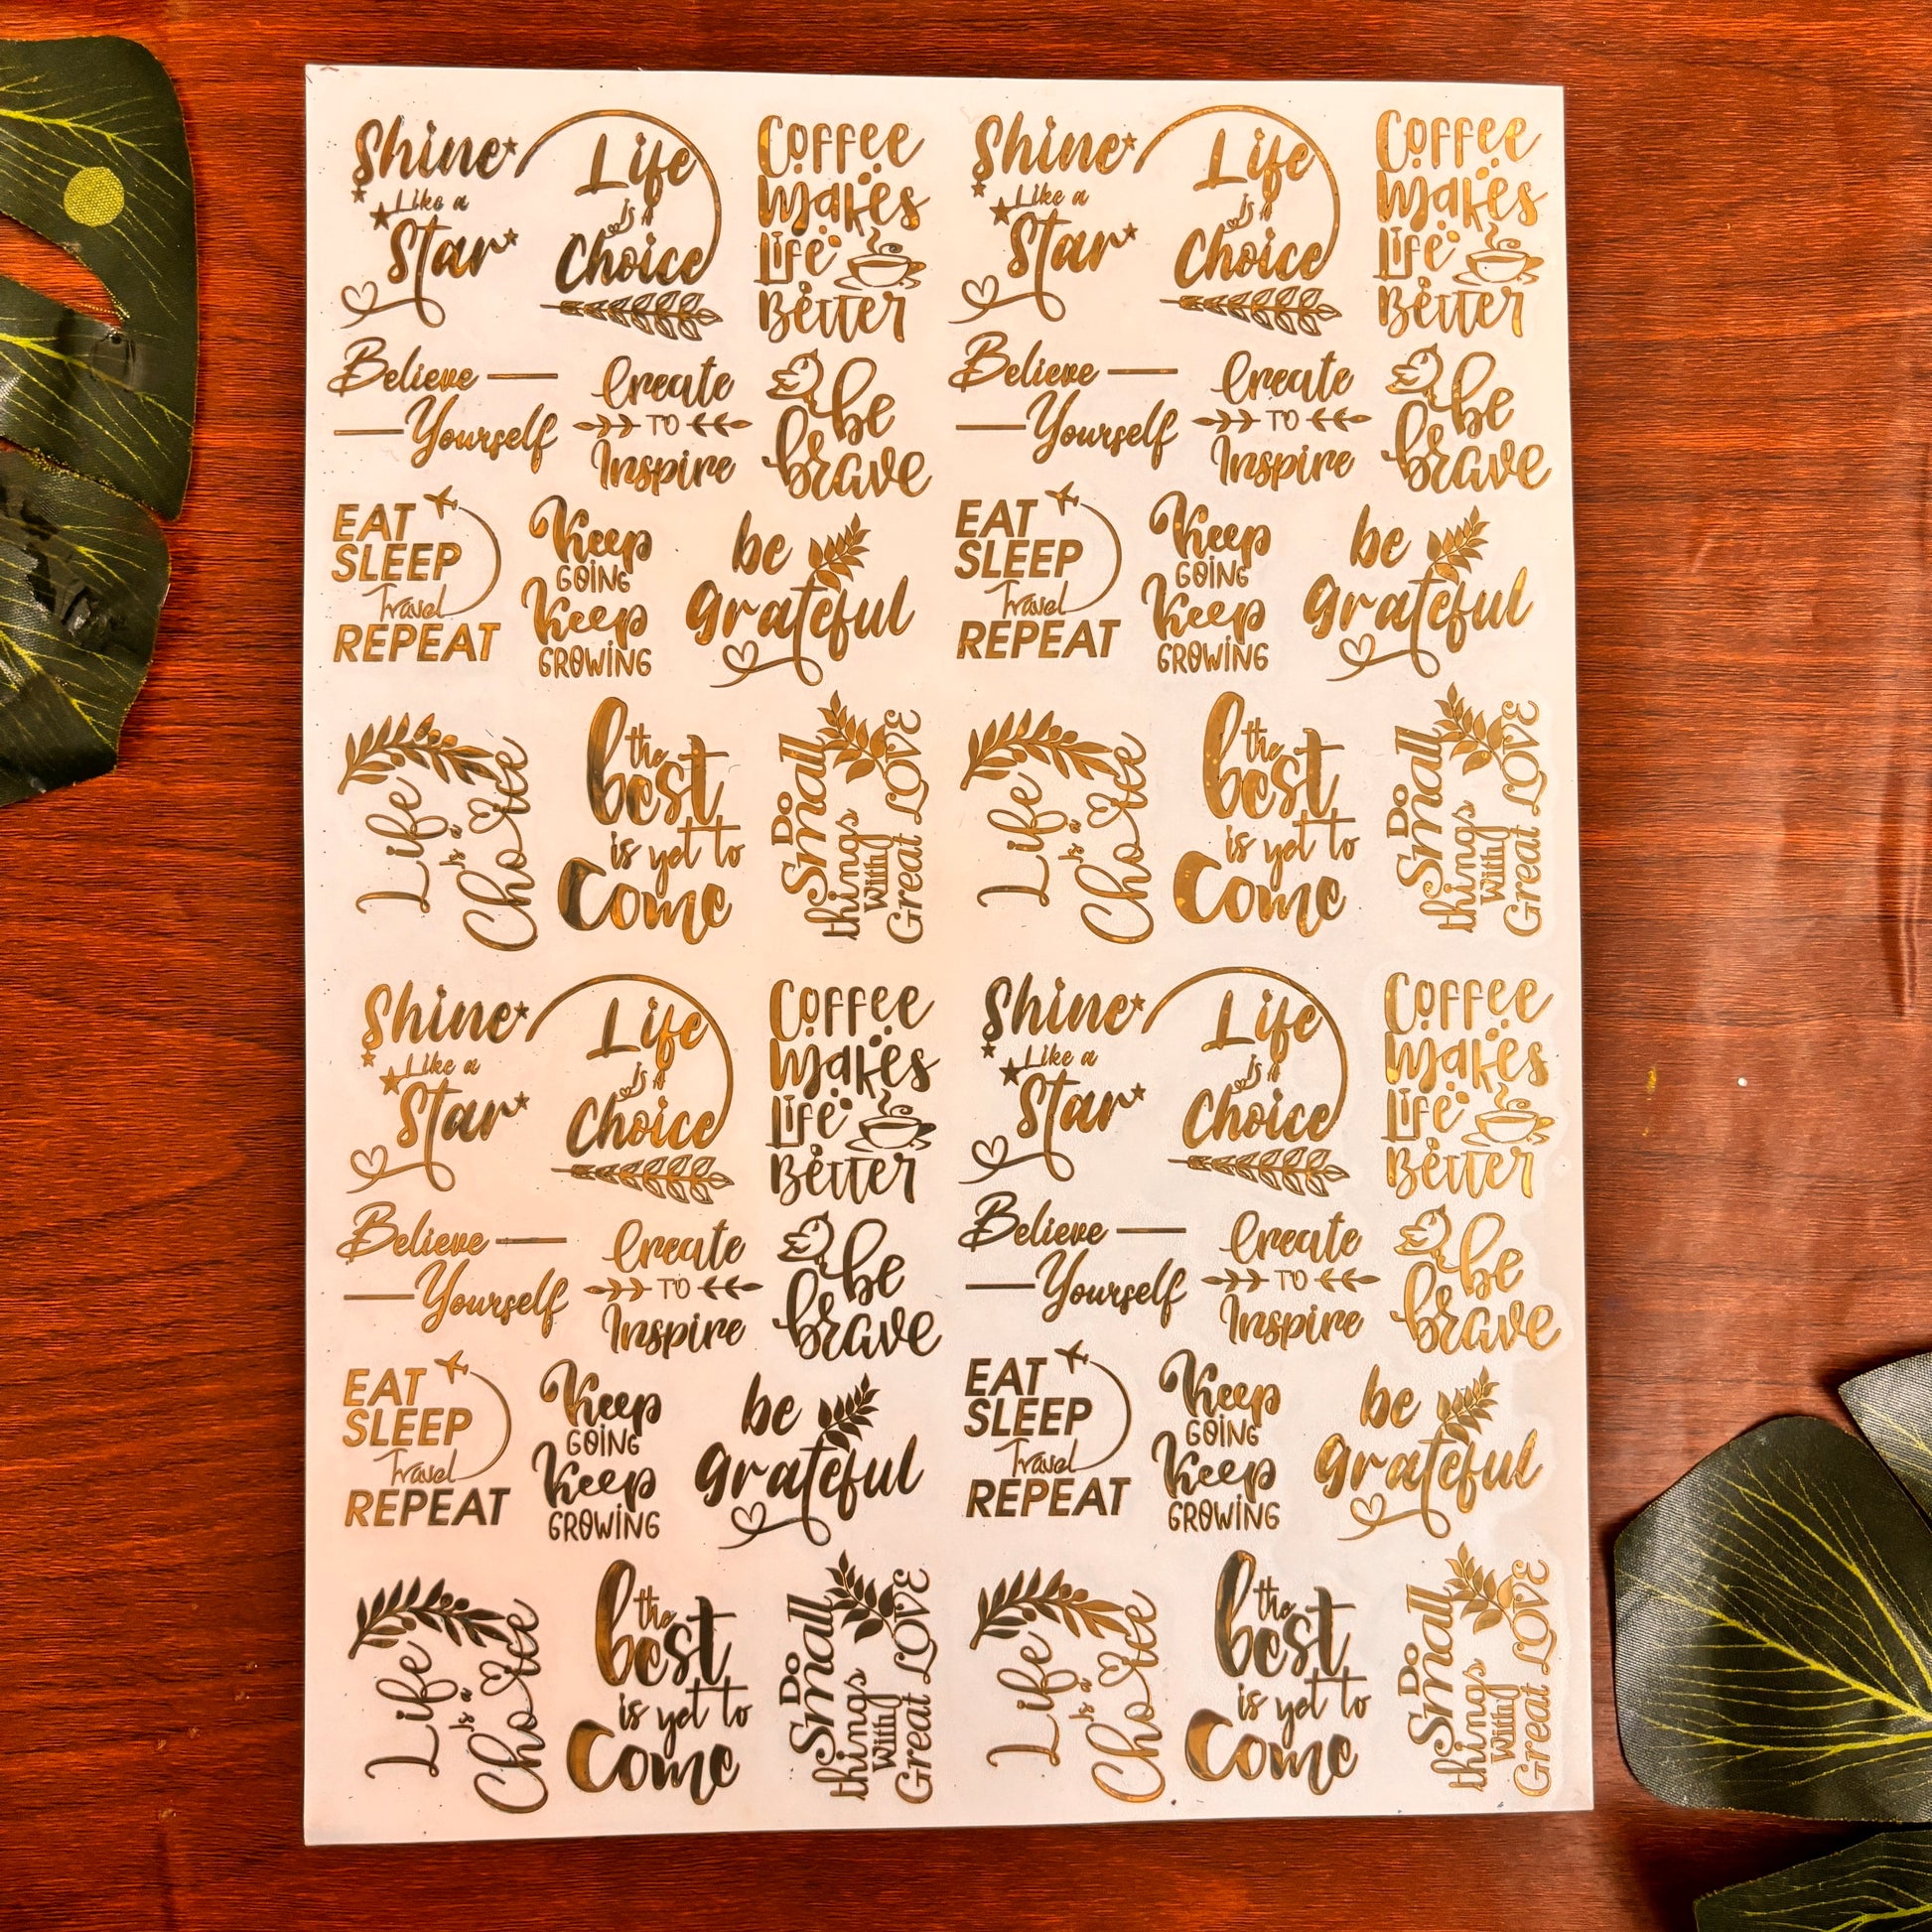 Shine
Like a
Star
Life
is a
Choice
Coffee
Makes
Life
Better
Shine
Like a
Star
Life
is a
Choice
Coffee
Makes
Life
Better
Believe
Yourself
Create
TO
Inspire
be
brave
Believe
Yourself
Create
TO
Inspire
be
brave
EAT
SLEEP
Travel
REPEAT
Keep
GOING
Keep
GROWING
be
grateful
EAT
SLEEP
Travel
REPEAT
Keep
GOING
Keep
GROWING
be
grateful
Life
is a
Choice
the
best
is yet to
Come
Do
Small
things
With
Great LOVE
Life
is a
Choice
the
best
is yet to
Come
Do
Small
things
With
Great LOVE
Shine
Like a
Star
Life
is a
Choice
Coffee
Makes
Life
Better
Shine
Like a
Star
Life
is a
Choice
Coffee
Makes
Life
Better
Believe
Yourself
Create
TO
Inspire
be
brave
Believe
Yourself
Create
TO
Inspire
be
brave
EAT
SLEEP
Travel
REPEAT
Keep
GOING
Keep
GROWING
be
grateful
EAT
SLEEP
Travel
REPEAT
Keep
GOING
Keep
GROWING
be
grateful
Life
is a
Choice
the
best
is yet to
Come
Do
Small
things
With
Great LOVE
Life
is a
Choice
the
best
is yet to
Come
Do
Small
things
With
Great LOVE